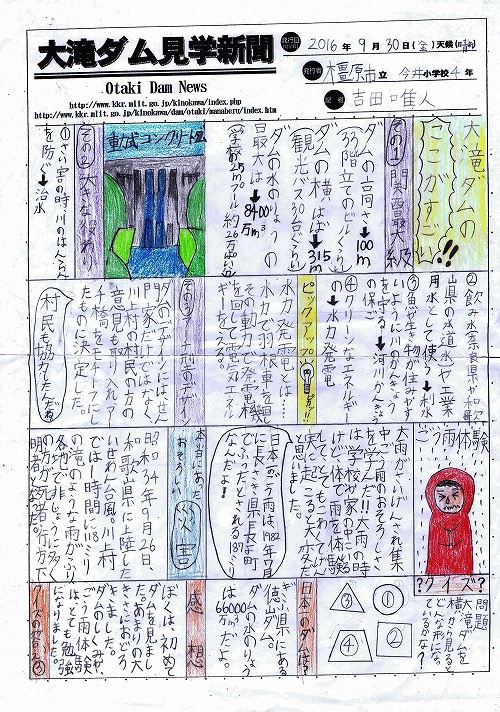 大滝ダム見学新聞
Otaki Dam News
http://www.kkr.mlit.go.jp/kinokawa/index.php
http://www.kkr.mlit.go.jp/kinokawa/dam/otaki/manaberu/index.htm
発行日
2016年9月30日(金)天候(晴)
発行者 橿原市立 今井小学校4年
記者
大竜ダムの
ここがすごい!!
その1 関西最大級
ダムの高さ→100m
(33階立てのビルぐらい)
ダムの横はば→315m
(観光バス30台ぐらい)
ダムの水のりょうの
最大は→8400万m³
重式コンクリート
その2 大きな役わり
①さい害の時、川のはんらん
を防ぐ→治水
②飲み水、奈良県や和歌
山県の水道水や工業
用水として使う→利水
③魚や生き物が住みやす
いように川のかんきょう
を守る→河川かんきょう
の保ご
④クリーンなエネルギー
の→水力発電
ピックアップ
水力発電とは……
水力で羽根車を回し
その動力で発電機
を回して電気エネル
ギーをえる。
その3 アーチ型のデザイン
ダムのデザインにはせん
門家だけではなく、
川上村の村民の方の
意見も取り入れアー
チ橋をモチーフにし
たものに決定した。
村民も協力したんだね
ごう雨体験
大雨がさいげんされ集
中ごう雨のおそろしさ
を学んだ!!大雨の時
は学校や家の中にいる
けど、体で雨を体験
してとてもこわくてほんとう
に起こると大変だ
と思いました。
日本のごう雨は1982年7月
に長さき県の長よ町
でふったとされる187ミリ
なんだよ!
本当にあった
おそろしい 災害
昭和34年9月26日、
和歌山県に上陸した
いせわん台風。川上村
では一時間に118ミリ
の滝のような雨がふり
各地でひじょうに多く
の方が死者、行方不
明者となった。
?クイズ?
問題
大滝ダムを
横から見ると
どんな形にな
っているかな?
① ② ③ ④
日本のダムは?
ぎふ県にある
徳山ダム。
ダムの水のりょう
は66000万m³だよ。
感想
ぼくは、初めて
ダムを見まし
た。あまりの大
きさにおどろ
きました。
ダムのしくみや、
ごう雨体験
はとても勉強
になりました。
クイズの答え③